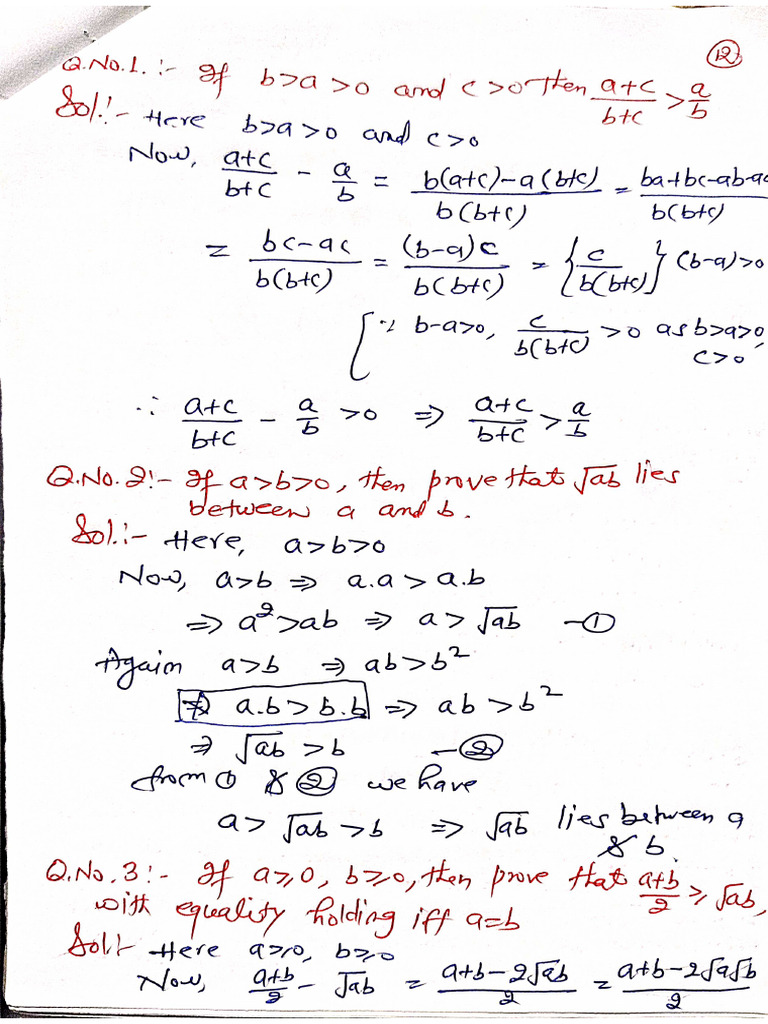 12
Q.No.1.:- If b>a>0 and c>0 then (a+c)/(b+c) > a/b
Sol.:- Here b>a>0 and c>0
Now, (a+c)/(b+c) - a/b = (b(a+c)-a(b+c))/(b(b+c)) = (ba+bc-ab-ac)/(b(b+c))
= (bc-ac)/(b(b+c)) = ((b-a)c)/(b(b+c)) = {c/(b(b+c))} (b-a)>0
[∵ b-a>0, c/(b(b+c)) >0 as b>a>0,
c>0
∴ (a+c)/(b+c) - a/b >0 ⇒ (a+c)/(b+c) > a/b
Q.No.2:- If a>b>0, then prove that √ab lies
between a and b.
Sol.:- Here, a>b>0
Now, a>b ⇒ a.a > a.b
⇒ a²>ab ⇒ a > √ab —①
Again a>b ⇒ ab>b²
⇒ a.b>b.b ⇒ ab>b²
⇒ √ab >b —②
from ① & ② we have
a> √ab >b ⇒ √ab lies between a
& b.
Q.No.3:- If a≥0, b≥0, then prove that (a+b)/2 ≥ √ab,
with equality holding iff a=b
Sol:- Here a≥0, b≥0
Now, (a+b)/2 - √ab = (a+b-2√ab)/2 = (a+b-2√a√b)/2